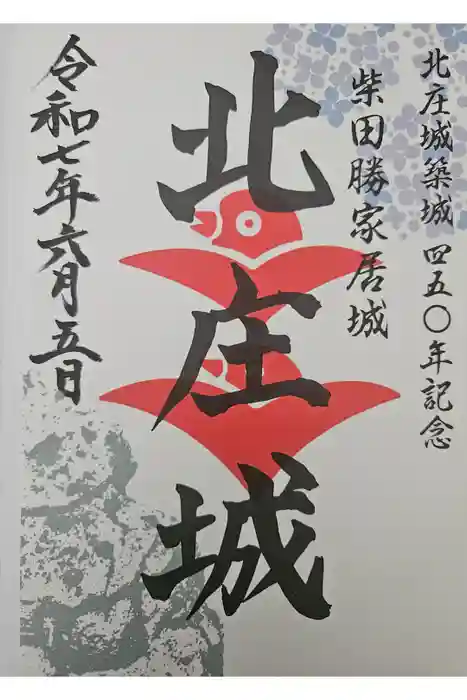 北庄城築城四五〇年記念
柴田勝家居城
北庄城
令和七年六月五日